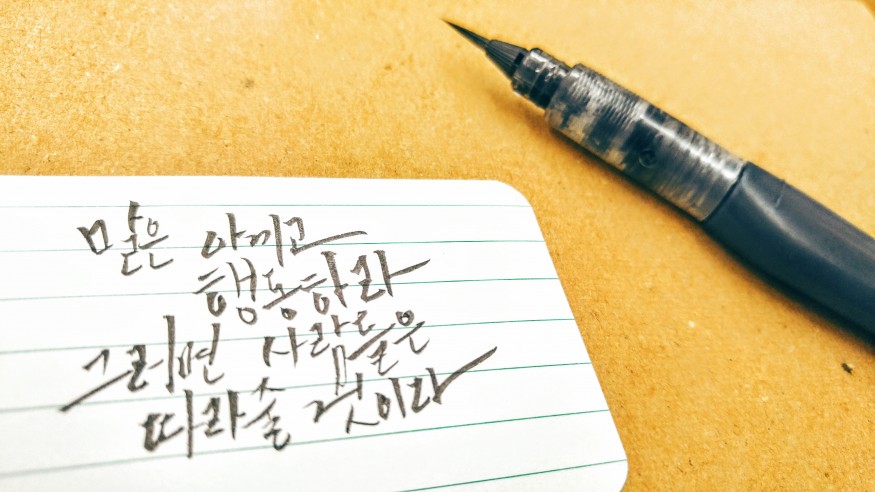 말은 아끼고
행동하라
그러면 사람들은
따라올 것이다